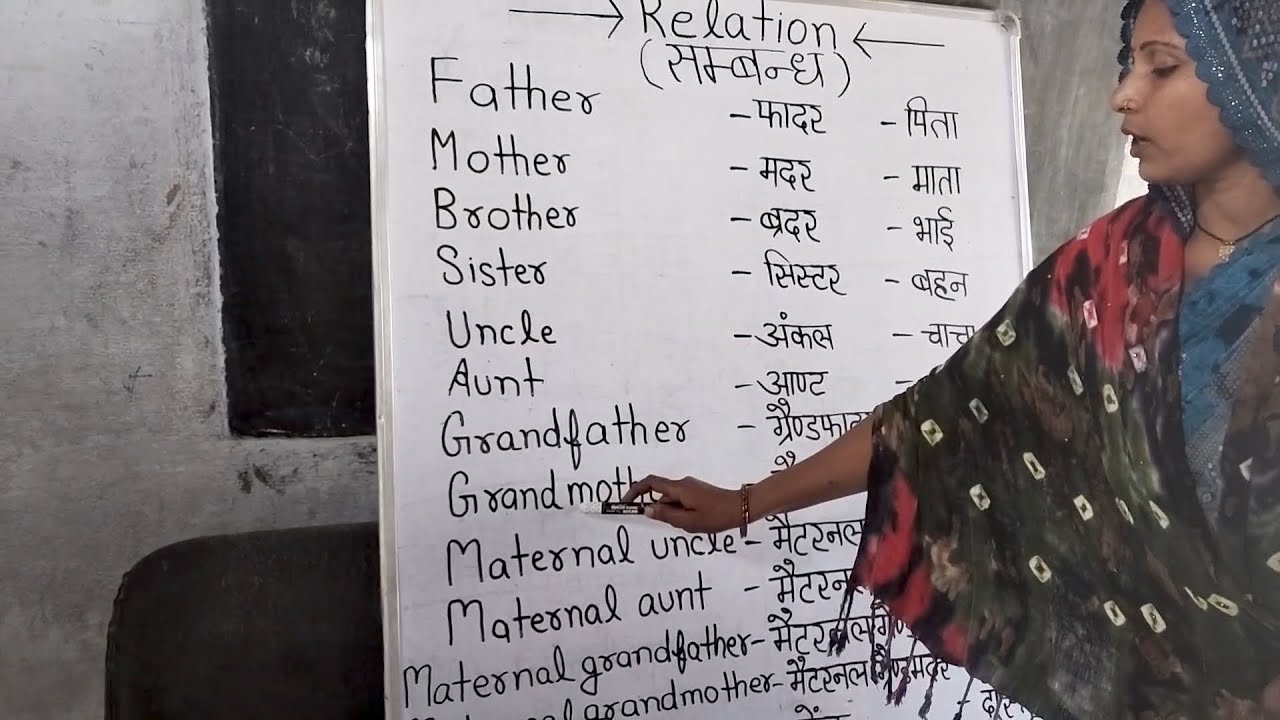 → Relation ←
(सम्बन्ध)
Father - फादर - पिता
Mother - मदर - माता
Brother - ब्रदर - भाई
Sister - सिस्टर - बहन
Uncle - अंकल - चाचा
Aunt - आण्ट -
Grandfather -
Maternal uncle - मैटरनल
Maternal aunt - मैटरनल
Maternal grandfather - मैटरनल
grandmother - मैटरनल ग्रैण्डमदर -